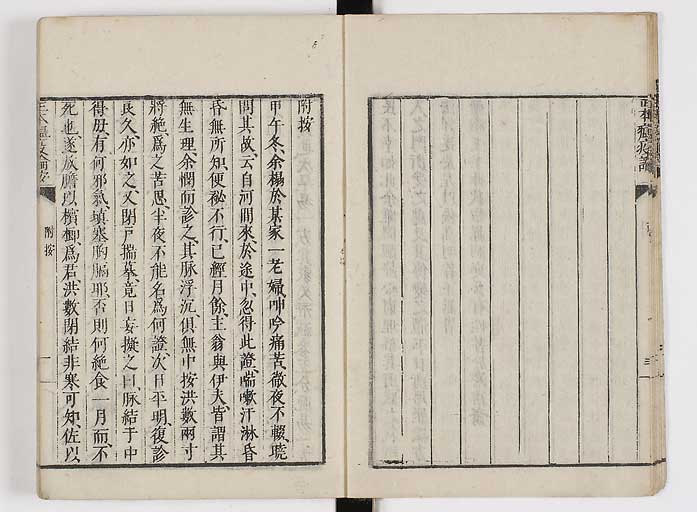 附按
甲午冬、余榻於某家、一老婦、呻吟痛苦、徹夜不輟、曉
問其故、云自河間來、於途中、忽得此證、喘嗽汗淋、昏
昏無所知、便秘不行、已經月餘、主翁與伊夫、皆謂其
無生理、余憫而診之、其脉浮沉俱無、中按洪數、兩寸
將絶、爲之苦思、半夜不能名爲何證、次日平明、復診
良久、亦如之、又閉戸揣摹、竟日妄擬之曰、脉結于中、
得毋有何邪氣、填塞胸膈耶、否則何絶食一月、而不
死也、遂放膽以檳榔、爲君、洪數閉結、非寒可知、佐以
附按